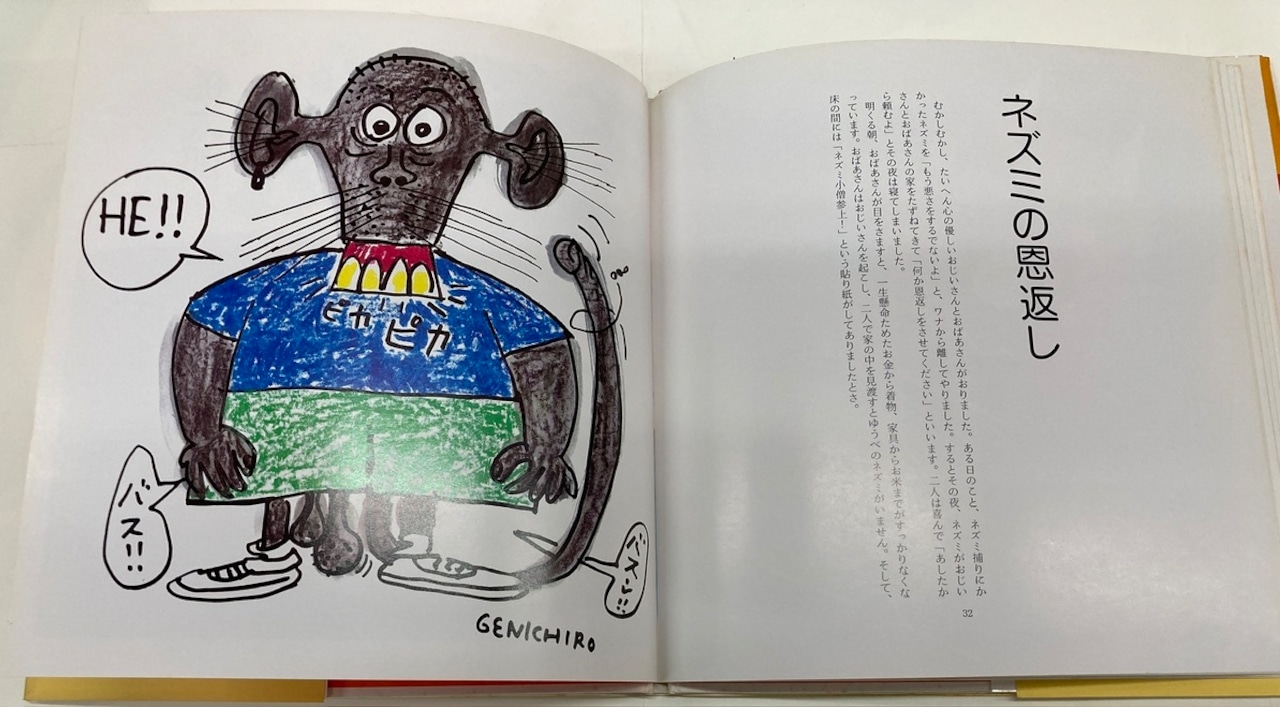 HE!!
ピカ
ピカ
バス!!
バスン!!
GENICHIRO
ネズミの恩返し
むかしむかし、たいへん心の優しいおじいさんとおばあさんがおりました。ある日のこと、ネズミ捕りにか
かったネズミを「もう悪さをするでないよ」と、ワナから離してやりました。するとその夜、ネズミがおじい
さんとおばあさんの家をたずねてきて「何か恩返しをさせてください」といいます。二人は喜んで「あしたか
ら頼むよ」とその夜は寝てしまいました。
明くる朝、おばあさんが目をさますと、一生懸命ためたお金から着物、家具からお米までがすっかりなくな
っています。おばあさんはおじいさんを起こし、二人で家の中を見渡すとゆうべのネズミがいません。そして、
床の間には「ネズミ小僧参上！」という貼り紙がしてありましたとさ。
32